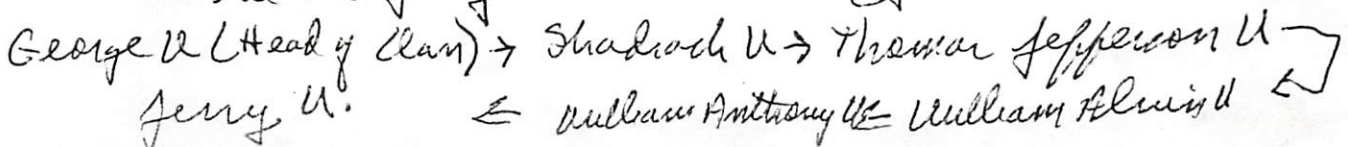 George U (Head of Clan) → Shadrach U → Thomas Jefferson U
Jerry U. ← William Anthony U ← William Alvin U ←